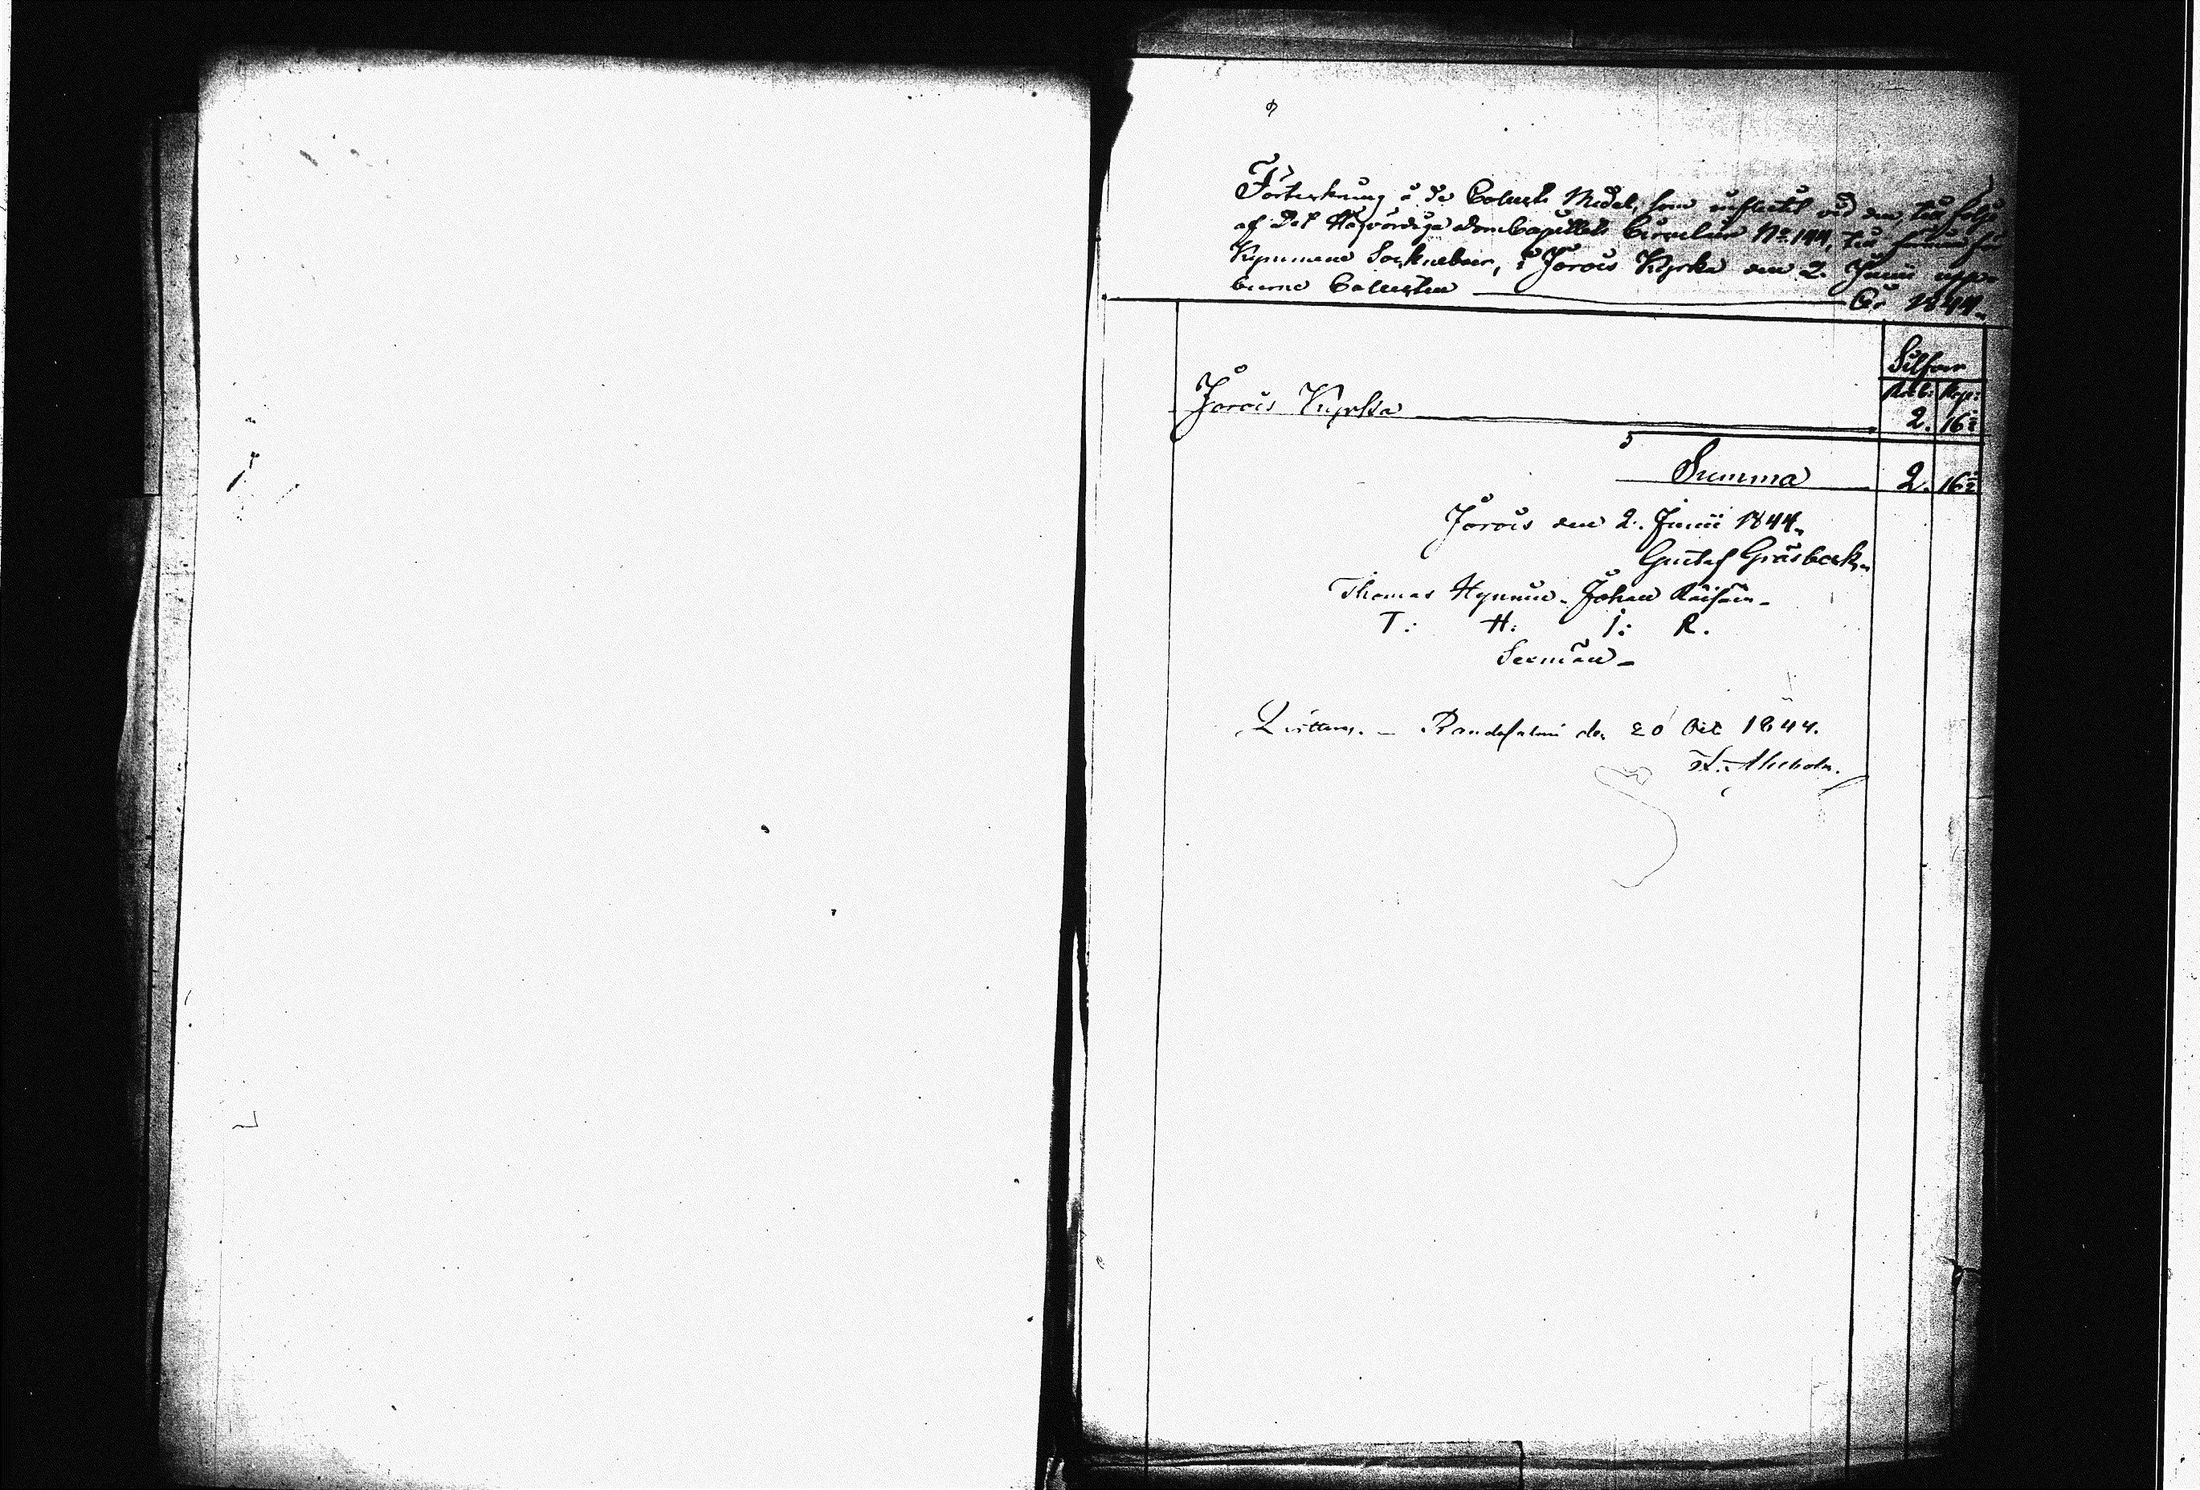 Förteckning å de Collects Medel, som influtit vid den, till följe
af Det Högvördiga Dom Capitlets Circulair No 144, till förmån för
Kymmene Sockneboer, i Jorois Kyrka den 2. Junii uppe
burne Collecten År 1844.
Silfver
Rub: Kop:
Jorois Kyrka 2. 16½
Summa 2. 16½
Jorois den 2. Junii 1844.
Gustaf Gråsbeck.
Thomas Hynnine. Johan Räisäin.
T: H: J: R.
Sexmän
Qvitteras. Randasalmi den 20 Oct 1844.